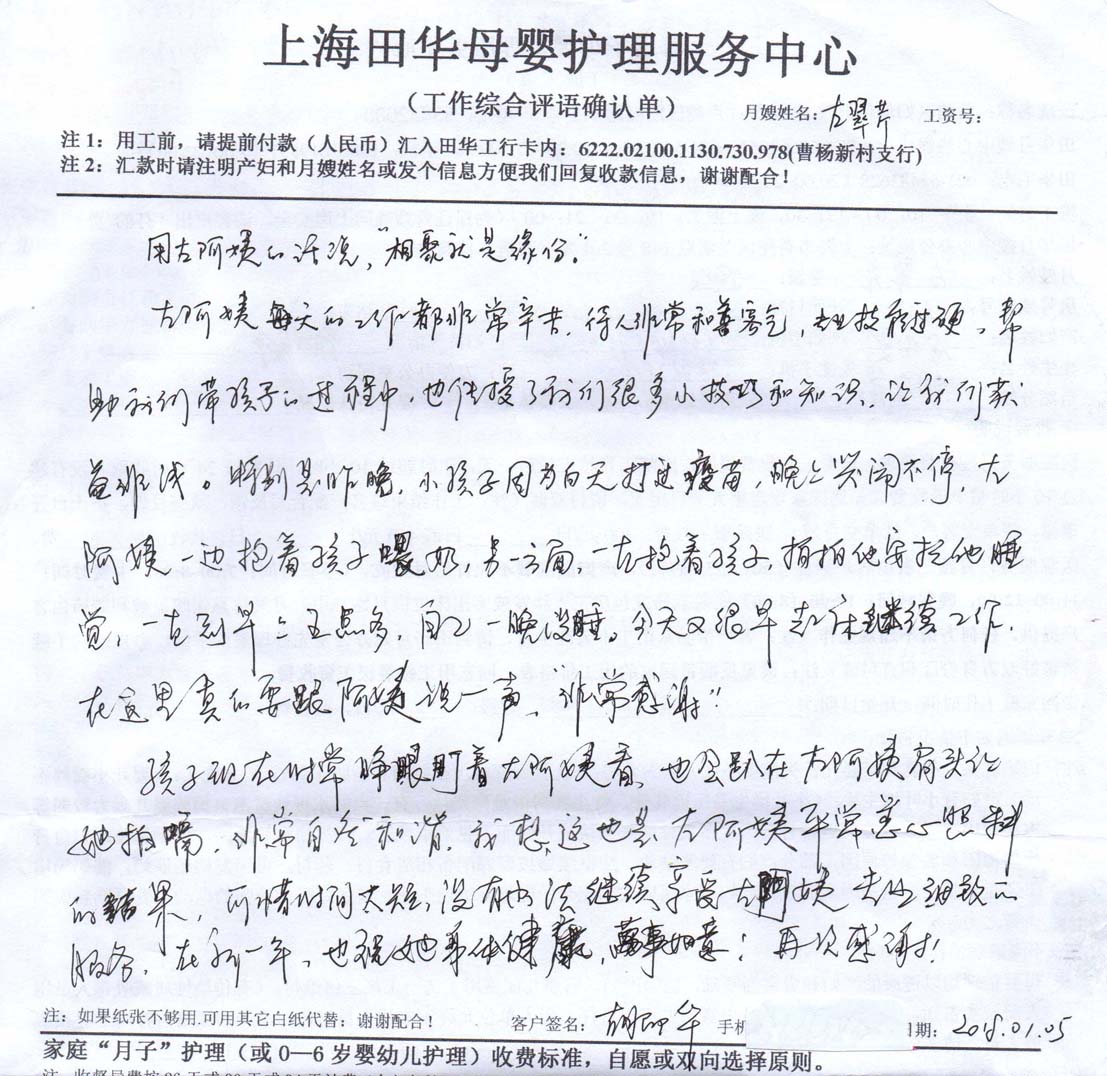 上海田华母婴护理服务中心
(工作综合评语确认单) 月嫂姓名: 左翠芹 工资号:
注 1: 用工前，请提前付款（人民币）汇入田华工行卡内: 6222.02100.1130.730.978(曹杨新村支行)
注 2: 汇款时请注明产妇和月嫂姓名或发个信息方便我们回复收款信息，谢谢配合！
用左阿姨的话说，"相聚就是缘份"
左阿姨每天的工作都非常辛苦，待人非常和善客气，专业技能过硬，帮
助我们带孩子的过程中，也传授了我们很多小技巧和知识，让我们获
益非浅。特别是昨晚，小孩子因为白天打过疫苗，晚上哭闹不停，左
阿姨一边抱着孩子喂奶，另一方面一直抱着孩子拍拍他守护他睡
觉，一直到早上五点多，自己一晚没睡，今天又很早起床继续工作，
在这里真的要跟阿姨说一声，"非常感谢"
孩子现在时常睁眼盯着左阿姨看，也会趴在左阿姨肩头让
她拍嗝，非常自然和谐，我想这也是左阿姨平常悉心照料
的结果，可惜时间太短，没有办法继续享受左阿姨专业细致的
服务，在新一年，也祝她身体健康，万事如意！再次感谢
注: 如果纸张不够用,可用其它白纸代替: 谢谢配合! 客户签名: 胡 华 手机 期: 2018.01.05
家庭“月子”护理（或 0—6 岁婴幼儿护理）收费标准，自愿或双向选择原则。